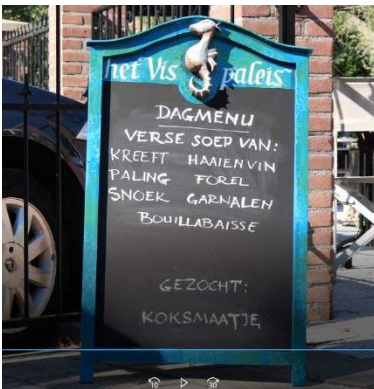 het Vis paleis
DAGMENU
VERSE SOEP VAN:
KREEFT HAAIENVIN
PALING FOREL
SNOEK GARNALEN
BOUILLABAISSE
GEZOCHT:
KOKSMAATJE
10 30